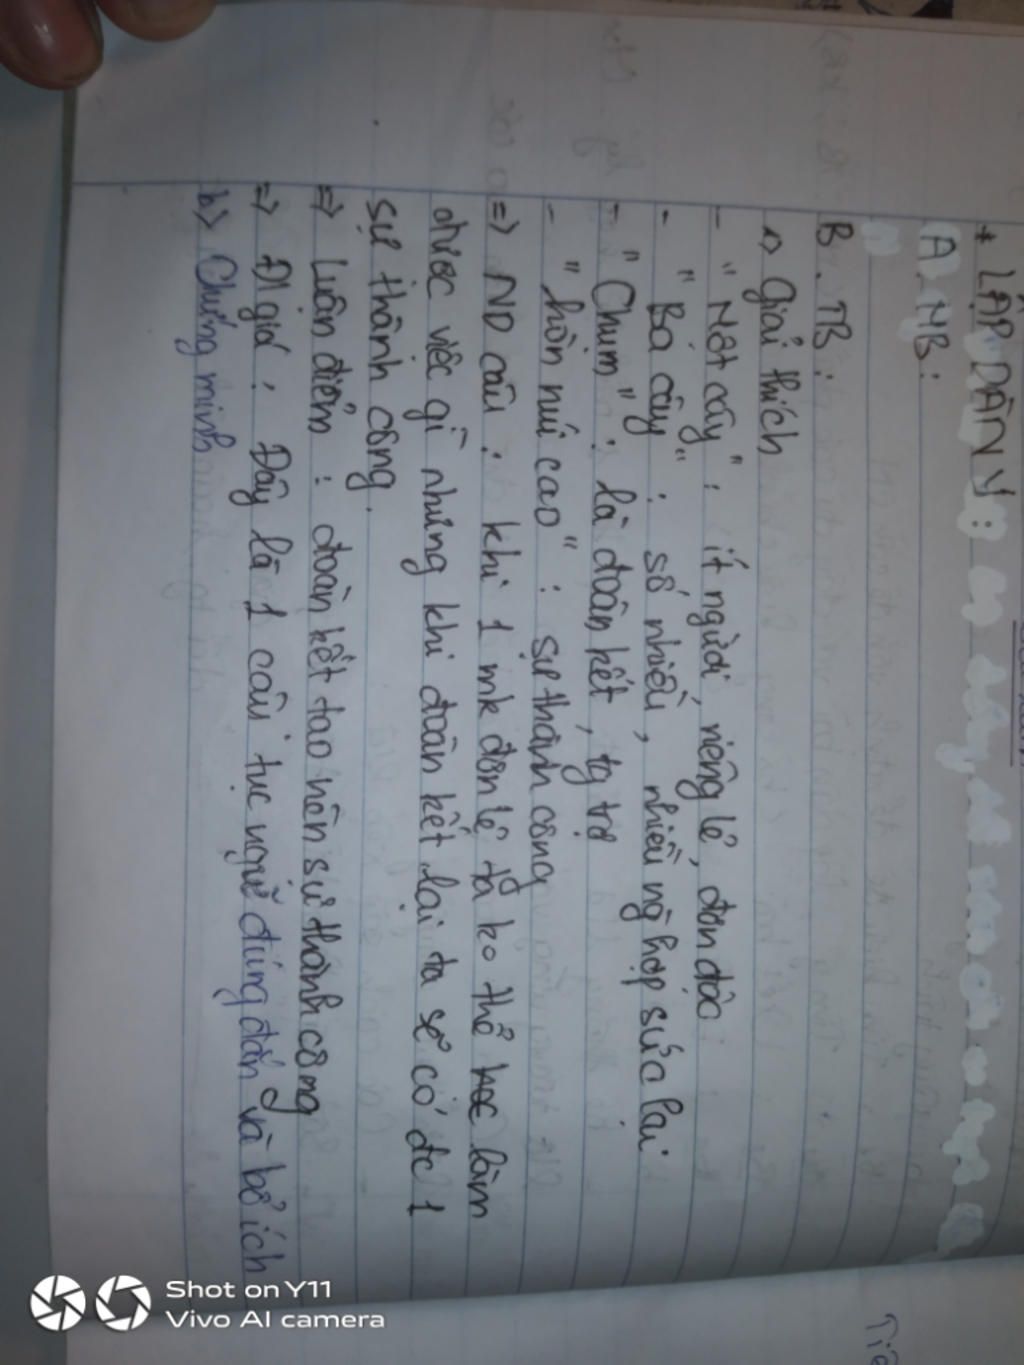 * LẬP DÀN Ý :
A. MB :
B. TB :
a> Giải thích
- "Một cây" : ít người, riêng lẻ, đơn độc
- "Ba cây" : số nhiều, nhiều ng hợp sức lại
- "Chụm" : là đoàn kết, tg trợ
- "hòn núi cao" : sự thành công
=> ND câu : khi 1 mk đơn lẻ ta ko thể làm
được việc gì nhưng khi đoàn kết lại ta sẽ có đc 1
sự thành công.
=> Luận điểm : đoàn kết tạo nên sự thành công
=> Đ giá : Đây là 1 câu tục ngữ đúng đắn và bổ ích
b> Chứng minh
Shot on Y11
Vivo AI camera